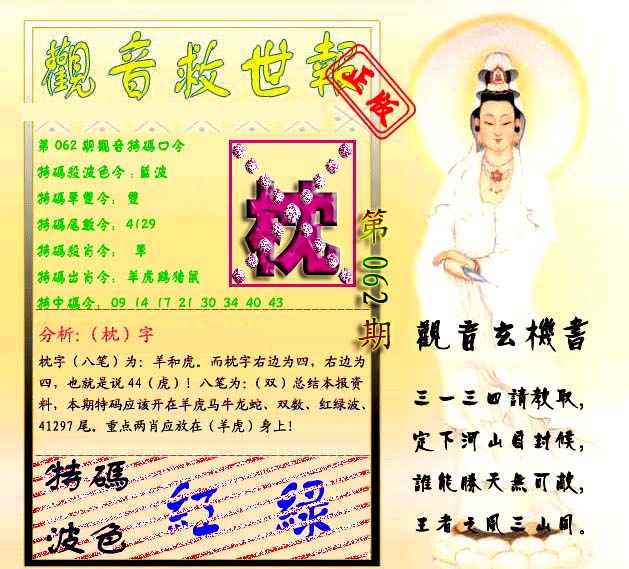 觀音救世報
正版
第062期觀音特碼口令
特碼殺波色令:藍波
特碼單雙令: 雙
特碼尾數令: 4129
特碼殺肖令: 單
特碼出肖令: 羊虎鷄猪鼠
特中碼令: 09 14 17 21 30 34 40 43
枕
第062期
分析:（枕）字
枕字（八笔）为：羊和虎。而枕字右边为四，右边为
四，也就是说44（虎）！八笔为：（双）总结本报资
料，本期特码应该开在羊虎马牛龙蛇、双数、红绿波、
41297尾。重点两肖应放在（羊虎）身上！
特碼
波色
紅 綠
觀音玄機書
三一三四請教取，
定下河山自封候，
誰能勝天無可敵，
王者之風三山間。